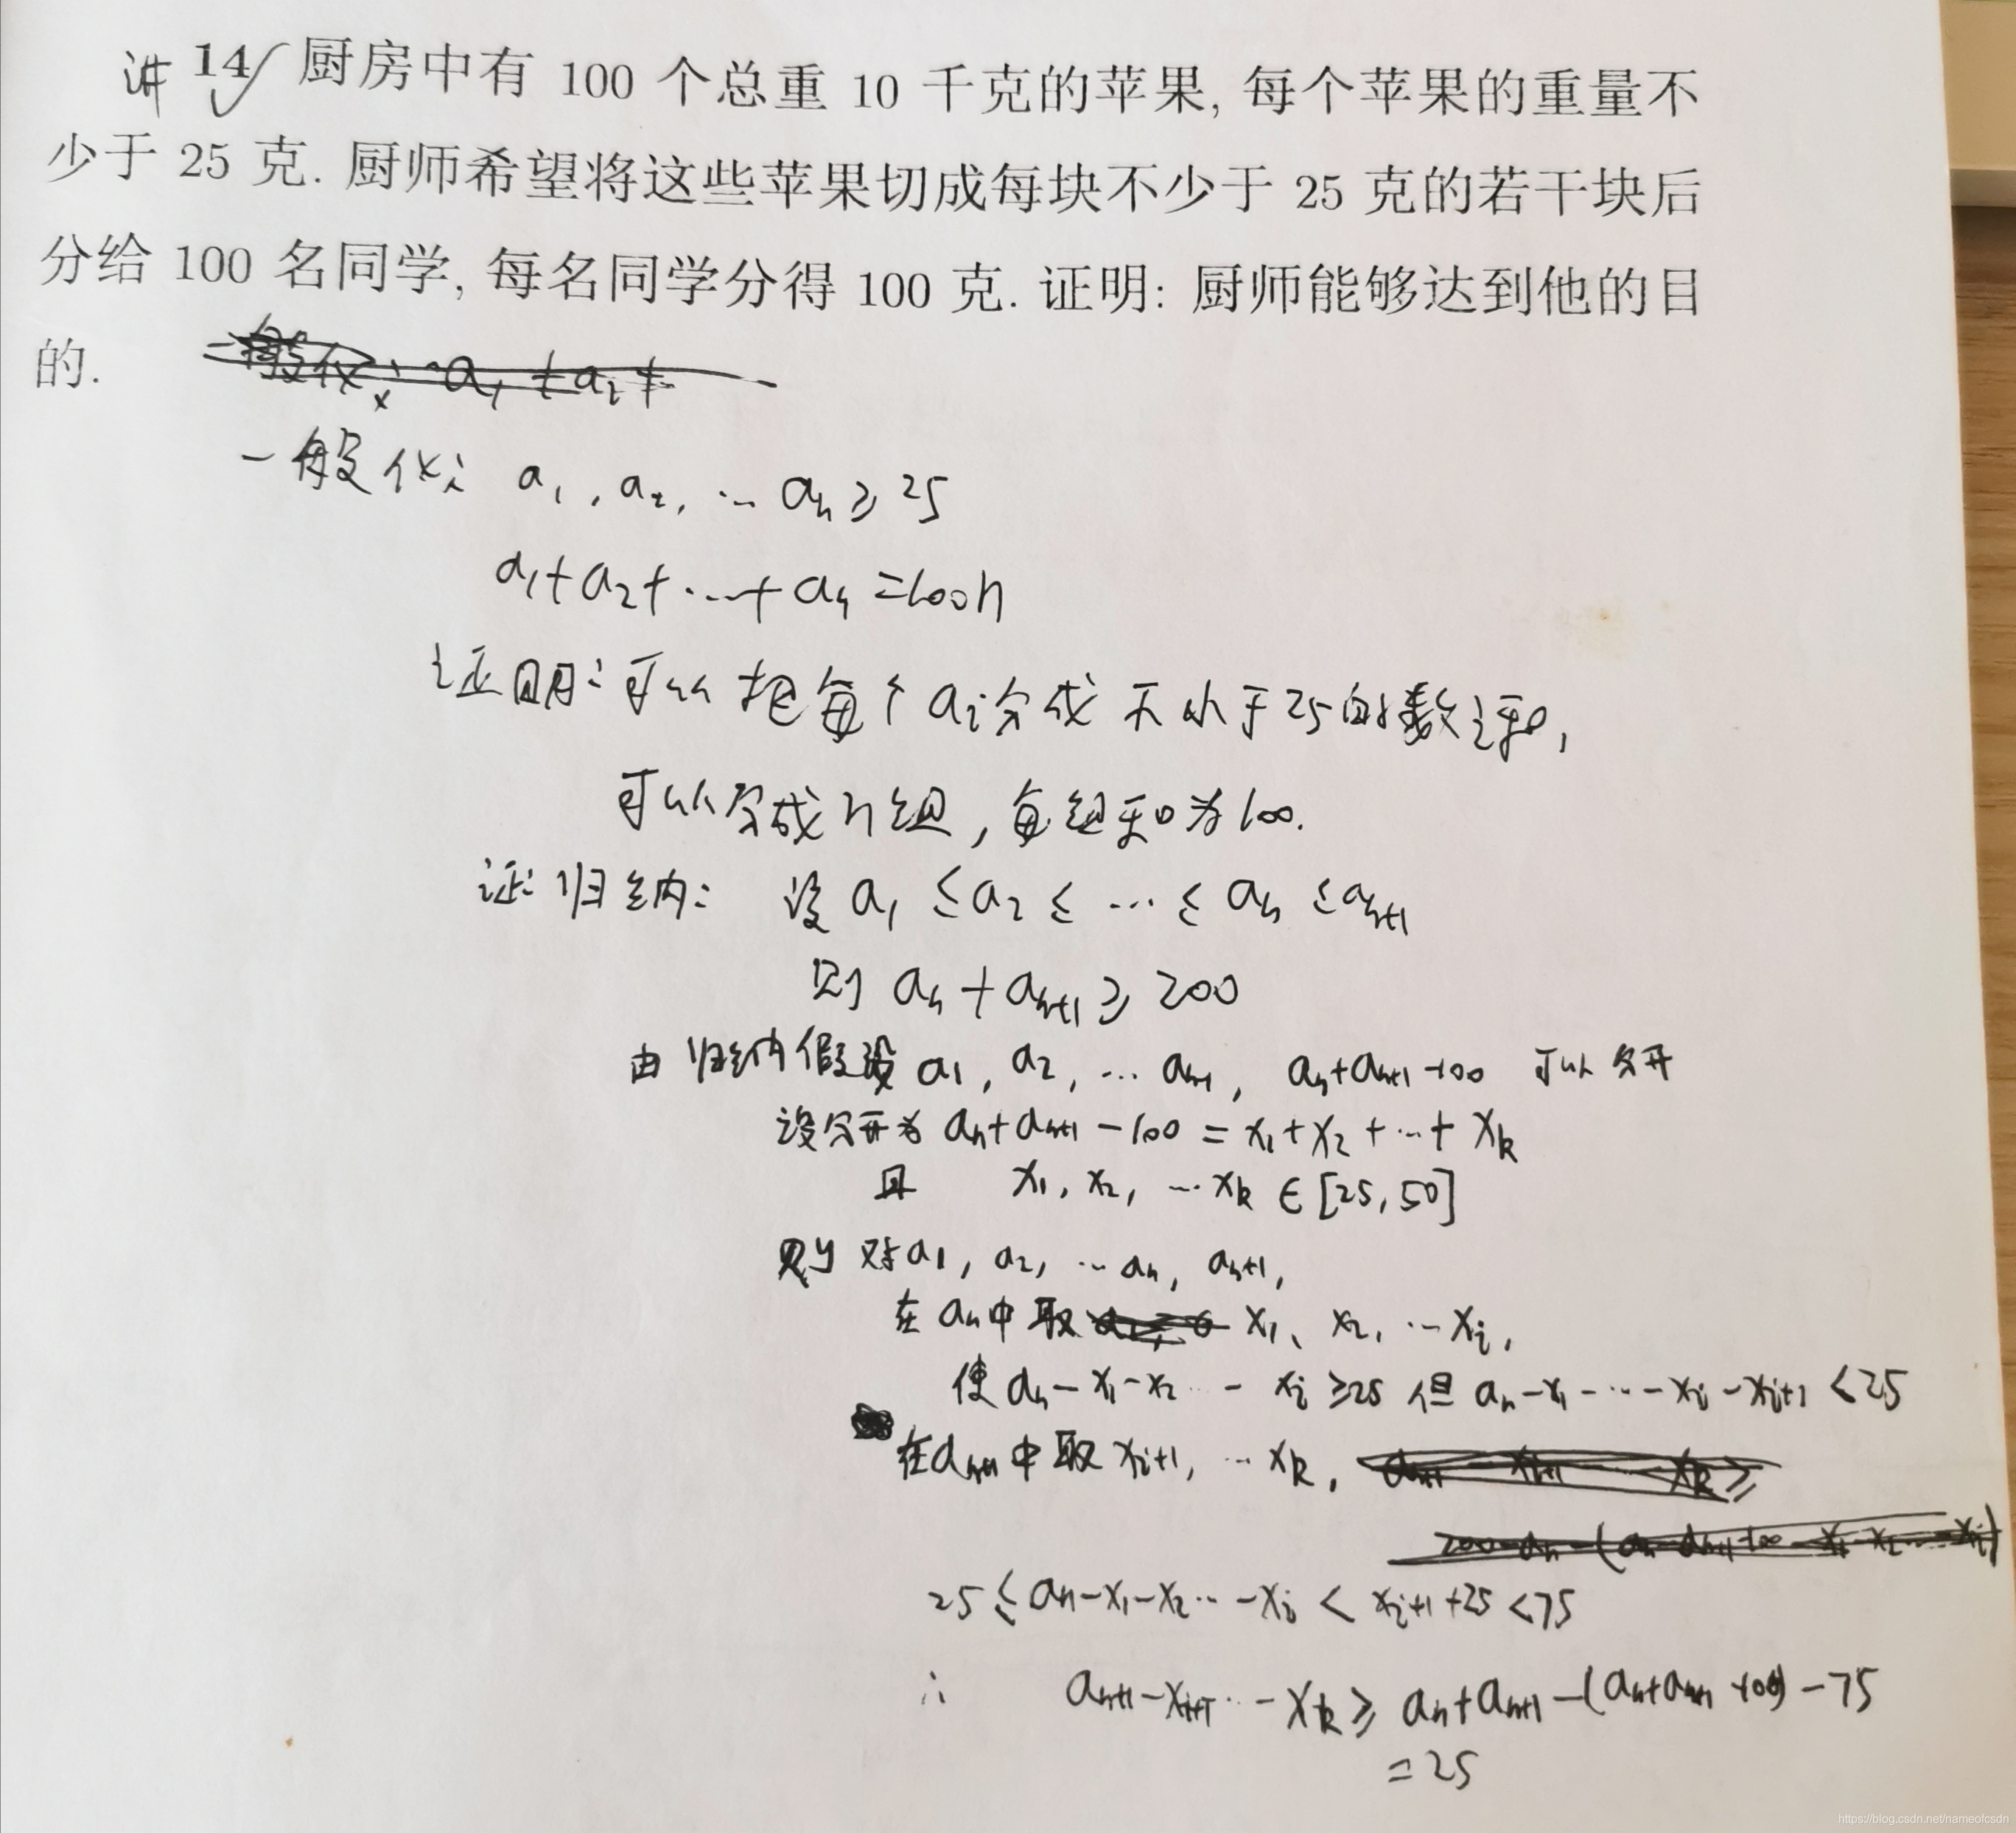 讲 14 厨房中有 100 个总重 10 千克的苹果, 每个苹果的重量不
少于 25 克. 厨师希望将这些苹果切成每块不少于 25 克的若干块后
分给 100 名同学, 每名同学分得 100 克. 证明: 厨师能够达到他的目
的.
一般化: a₁, a₂, … aₙ ≥ 25
a₁+a₂+…+aₙ = 100n
证明: 可以把每个 aᵢ 分成不小于25的数之和,
可以分成n组, 每组和为100.
证: 归纳: 设 a₁ ≤ a₂ ≤ … ≤ aₙ ≤ aₙ₊₁
则 aₙ + aₙ₊₁ ≥ 200
由归纳假设 a₁, a₂, … aₙ₋₁, aₙ+aₙ₊₁-100 可以分开
设分开为 aₙ+aₙ₊₁-100 = x₁+x₂+…+xₖ
且 x₁, x₂, …xₖ ∈ [25, 50]
则对 a₁, a₂, …aₙ, aₙ₊₁,
在 aₙ 中取 x₁、x₂, …xᵢ,
使 aₙ-x₁-x₂…-xᵢ ≥25 但 aₙ-x₁-…-xᵢ-xᵢ₊₁ <25
在 aₙ₊₁ 中取 xᵢ₊₁, …xₖ,
25 ≤ aₙ-x₁-x₂…-xᵢ < xᵢ₊₁+25 <75
∴ aₙ₊₁-xᵢ₊₁…-xₖ ≥ aₙ+aₙ₊₁-(aₙ+aₙ₊₁-100)-75
=25
https://blog.csdn.net/nameofcsdn